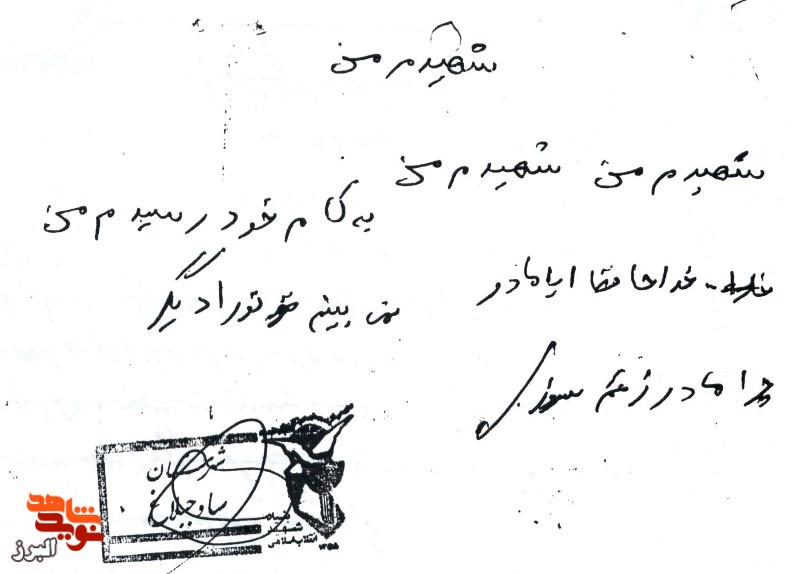 شهیدم من
شهیدم من شهیدم من
به کام خود رسیدم من
خداحافظ ایا مادر
نمی بینم تو را دیگر
چرا مادر ز غم سوزی
شهرستان
ساوجبلاغ
بنیاد
شهید
انقلاب اسلامی
۱۳۵۸
نوید شاهد
البرز